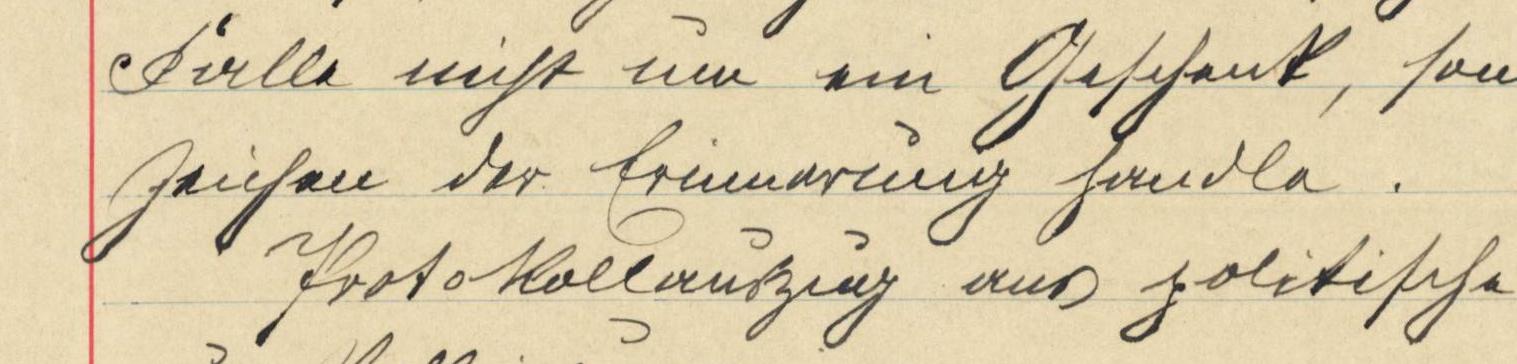 Falle nicht um ein Geschenk, son
zeichen der Erinnerung handle.
Protokollauszug aus politische